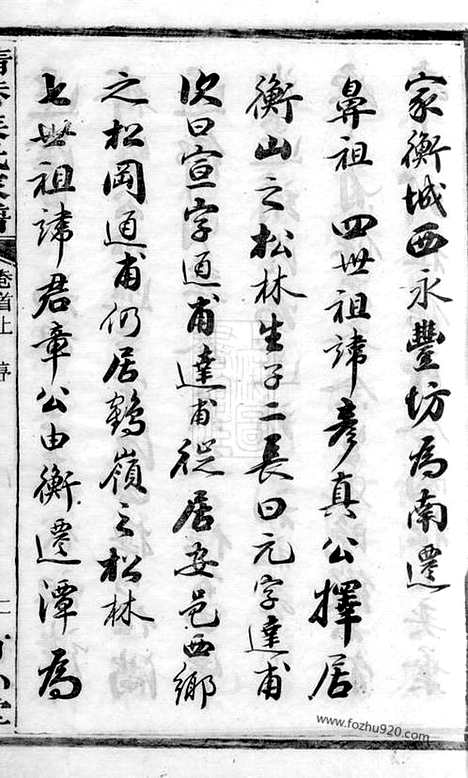 家衡城西永豐坊為南遷
鼻祖 四世祖諱彥真公擇居
衡山之松林生子二長曰元字達甫
次曰宣字通甫達甫從居安邑西鄉
之松岡通甫仍居鶴嶺之松林
七世祖諱君章公由衡遷潭為
卷首上 序
www.fozhu920.com